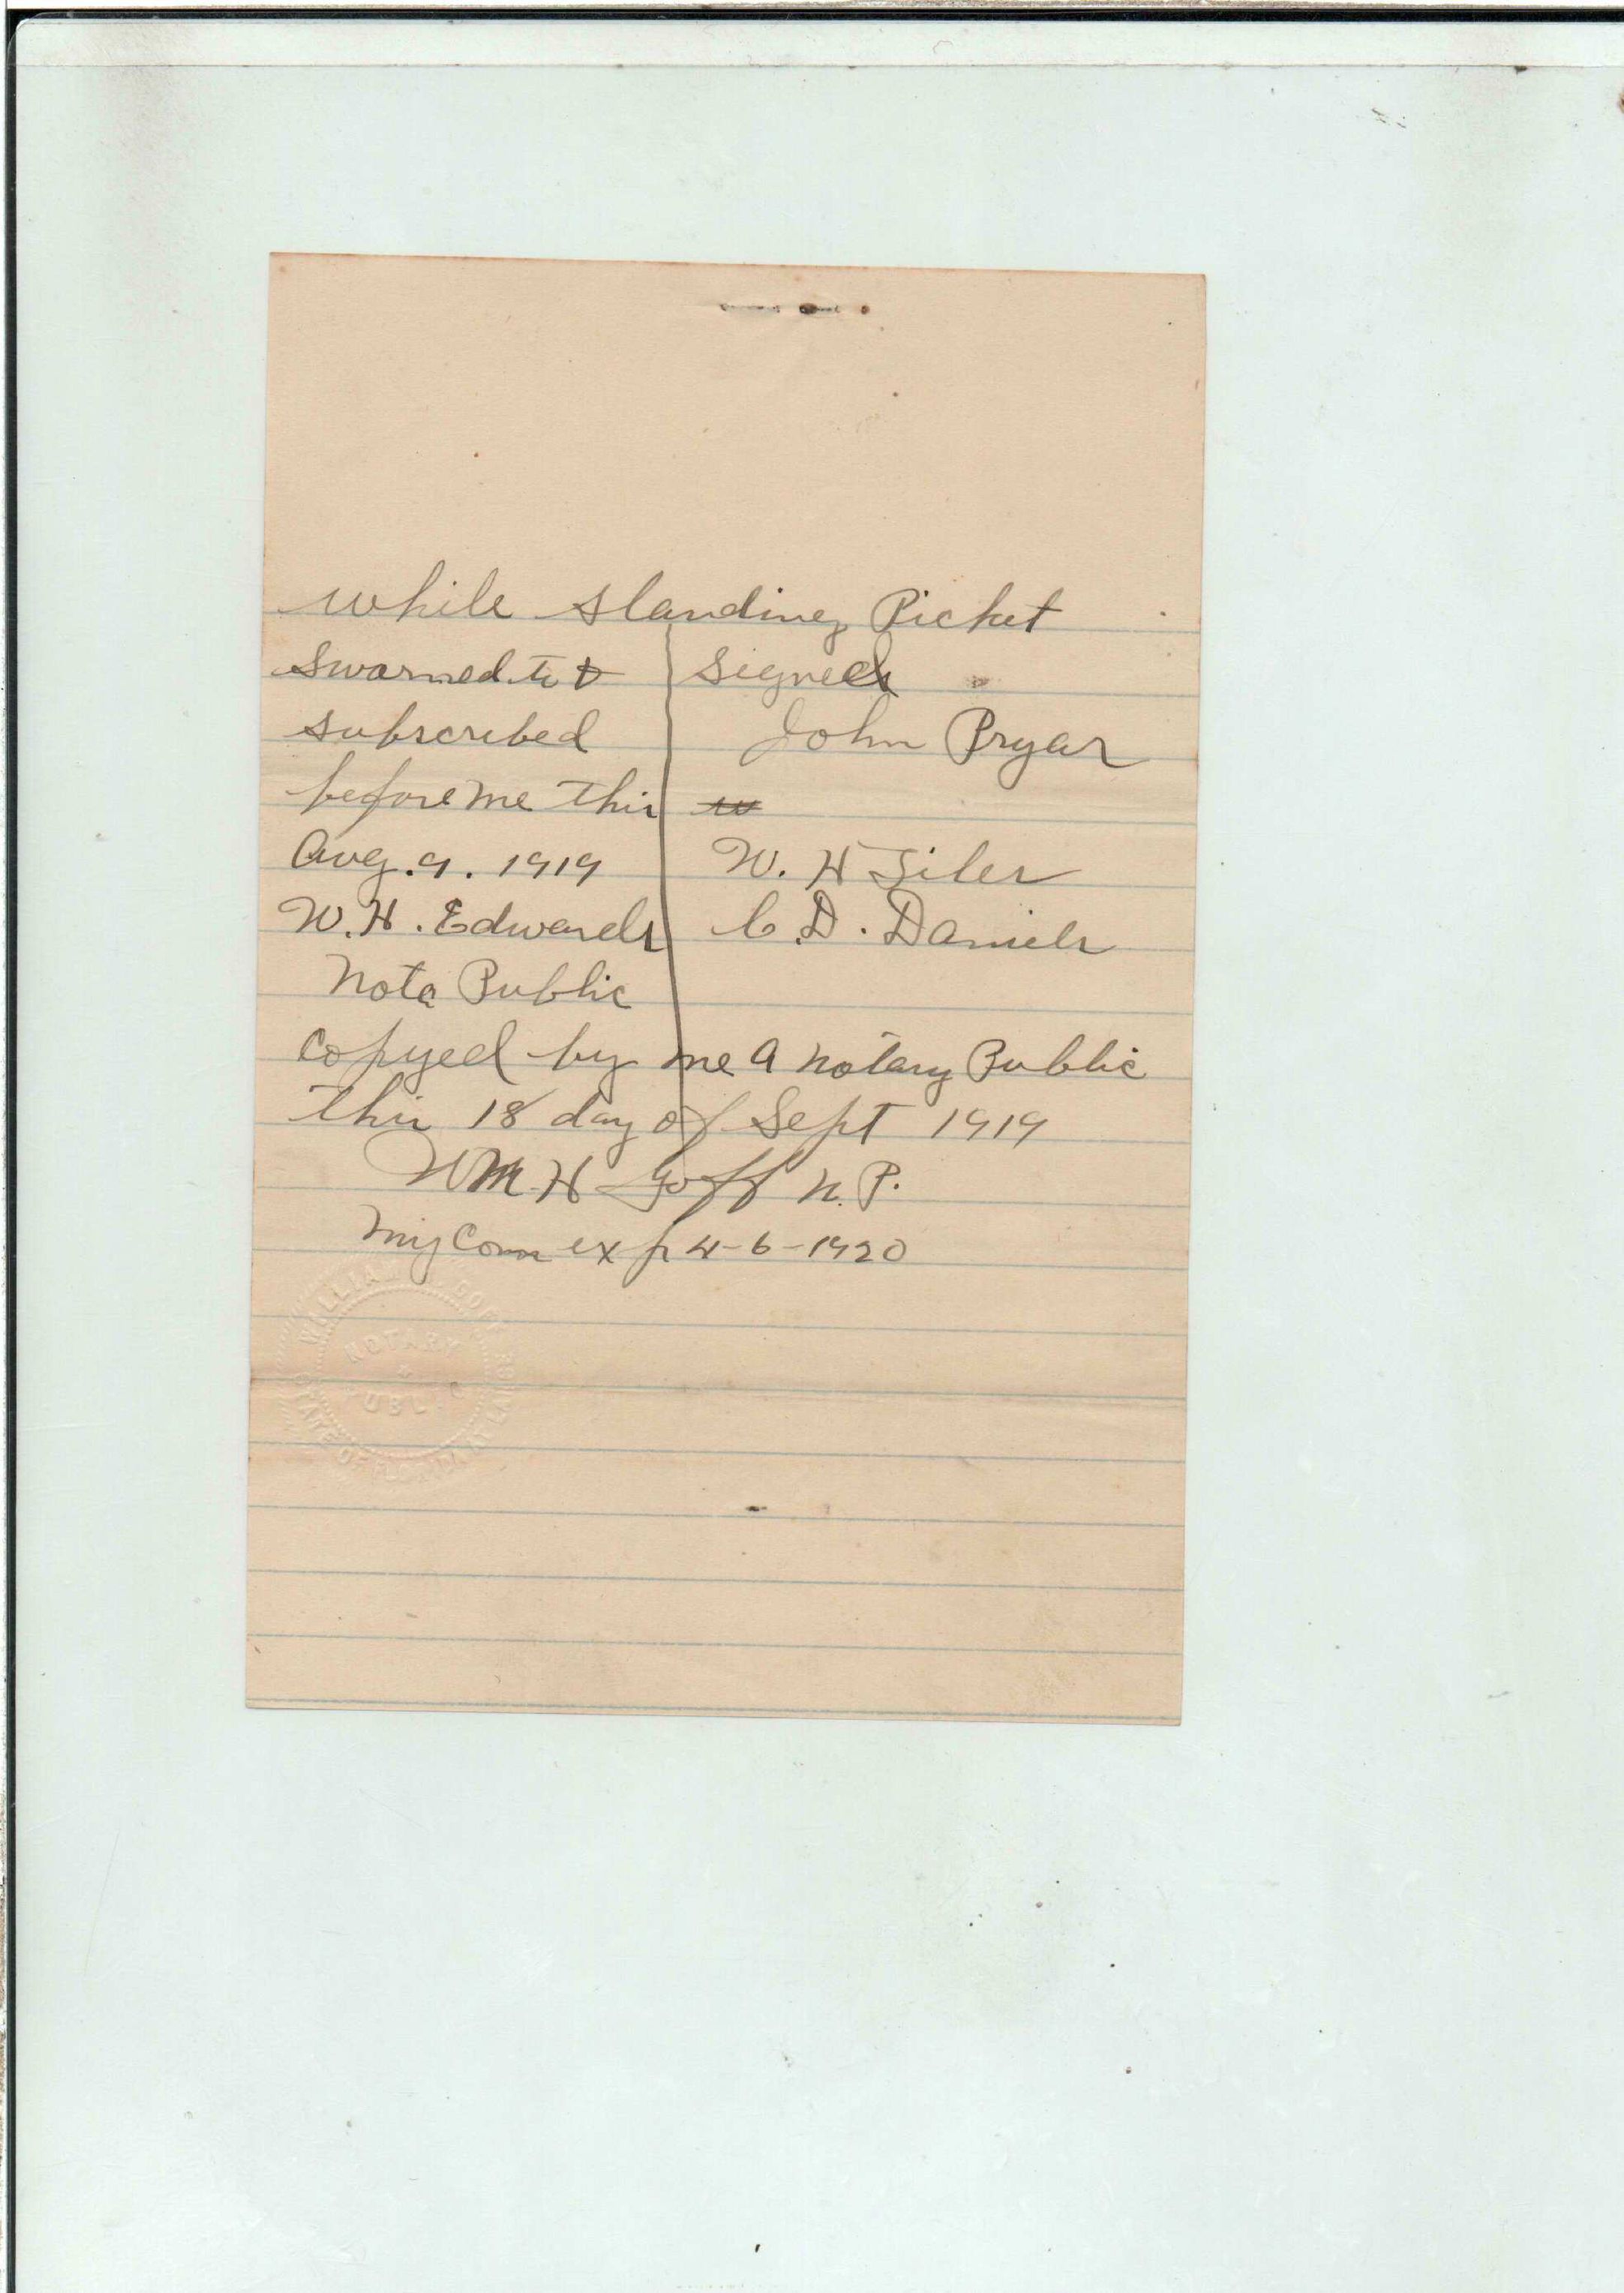 while standing Picket
Swarned to &
subscribed
before me this
Aug. 9. 1919
W. H. Edwards
Nota Public
Signed
John Pryar
W. H Siler
C. D. Daniels
Copyed by me a Notary Public
this 18 day of Sept 1919
WM. H Goff N. P.
My Com exp 4-6-1920
WILLIAM GOFF
NOTARY
PUBLIC
STATE OF FLORIDA AT LARGE